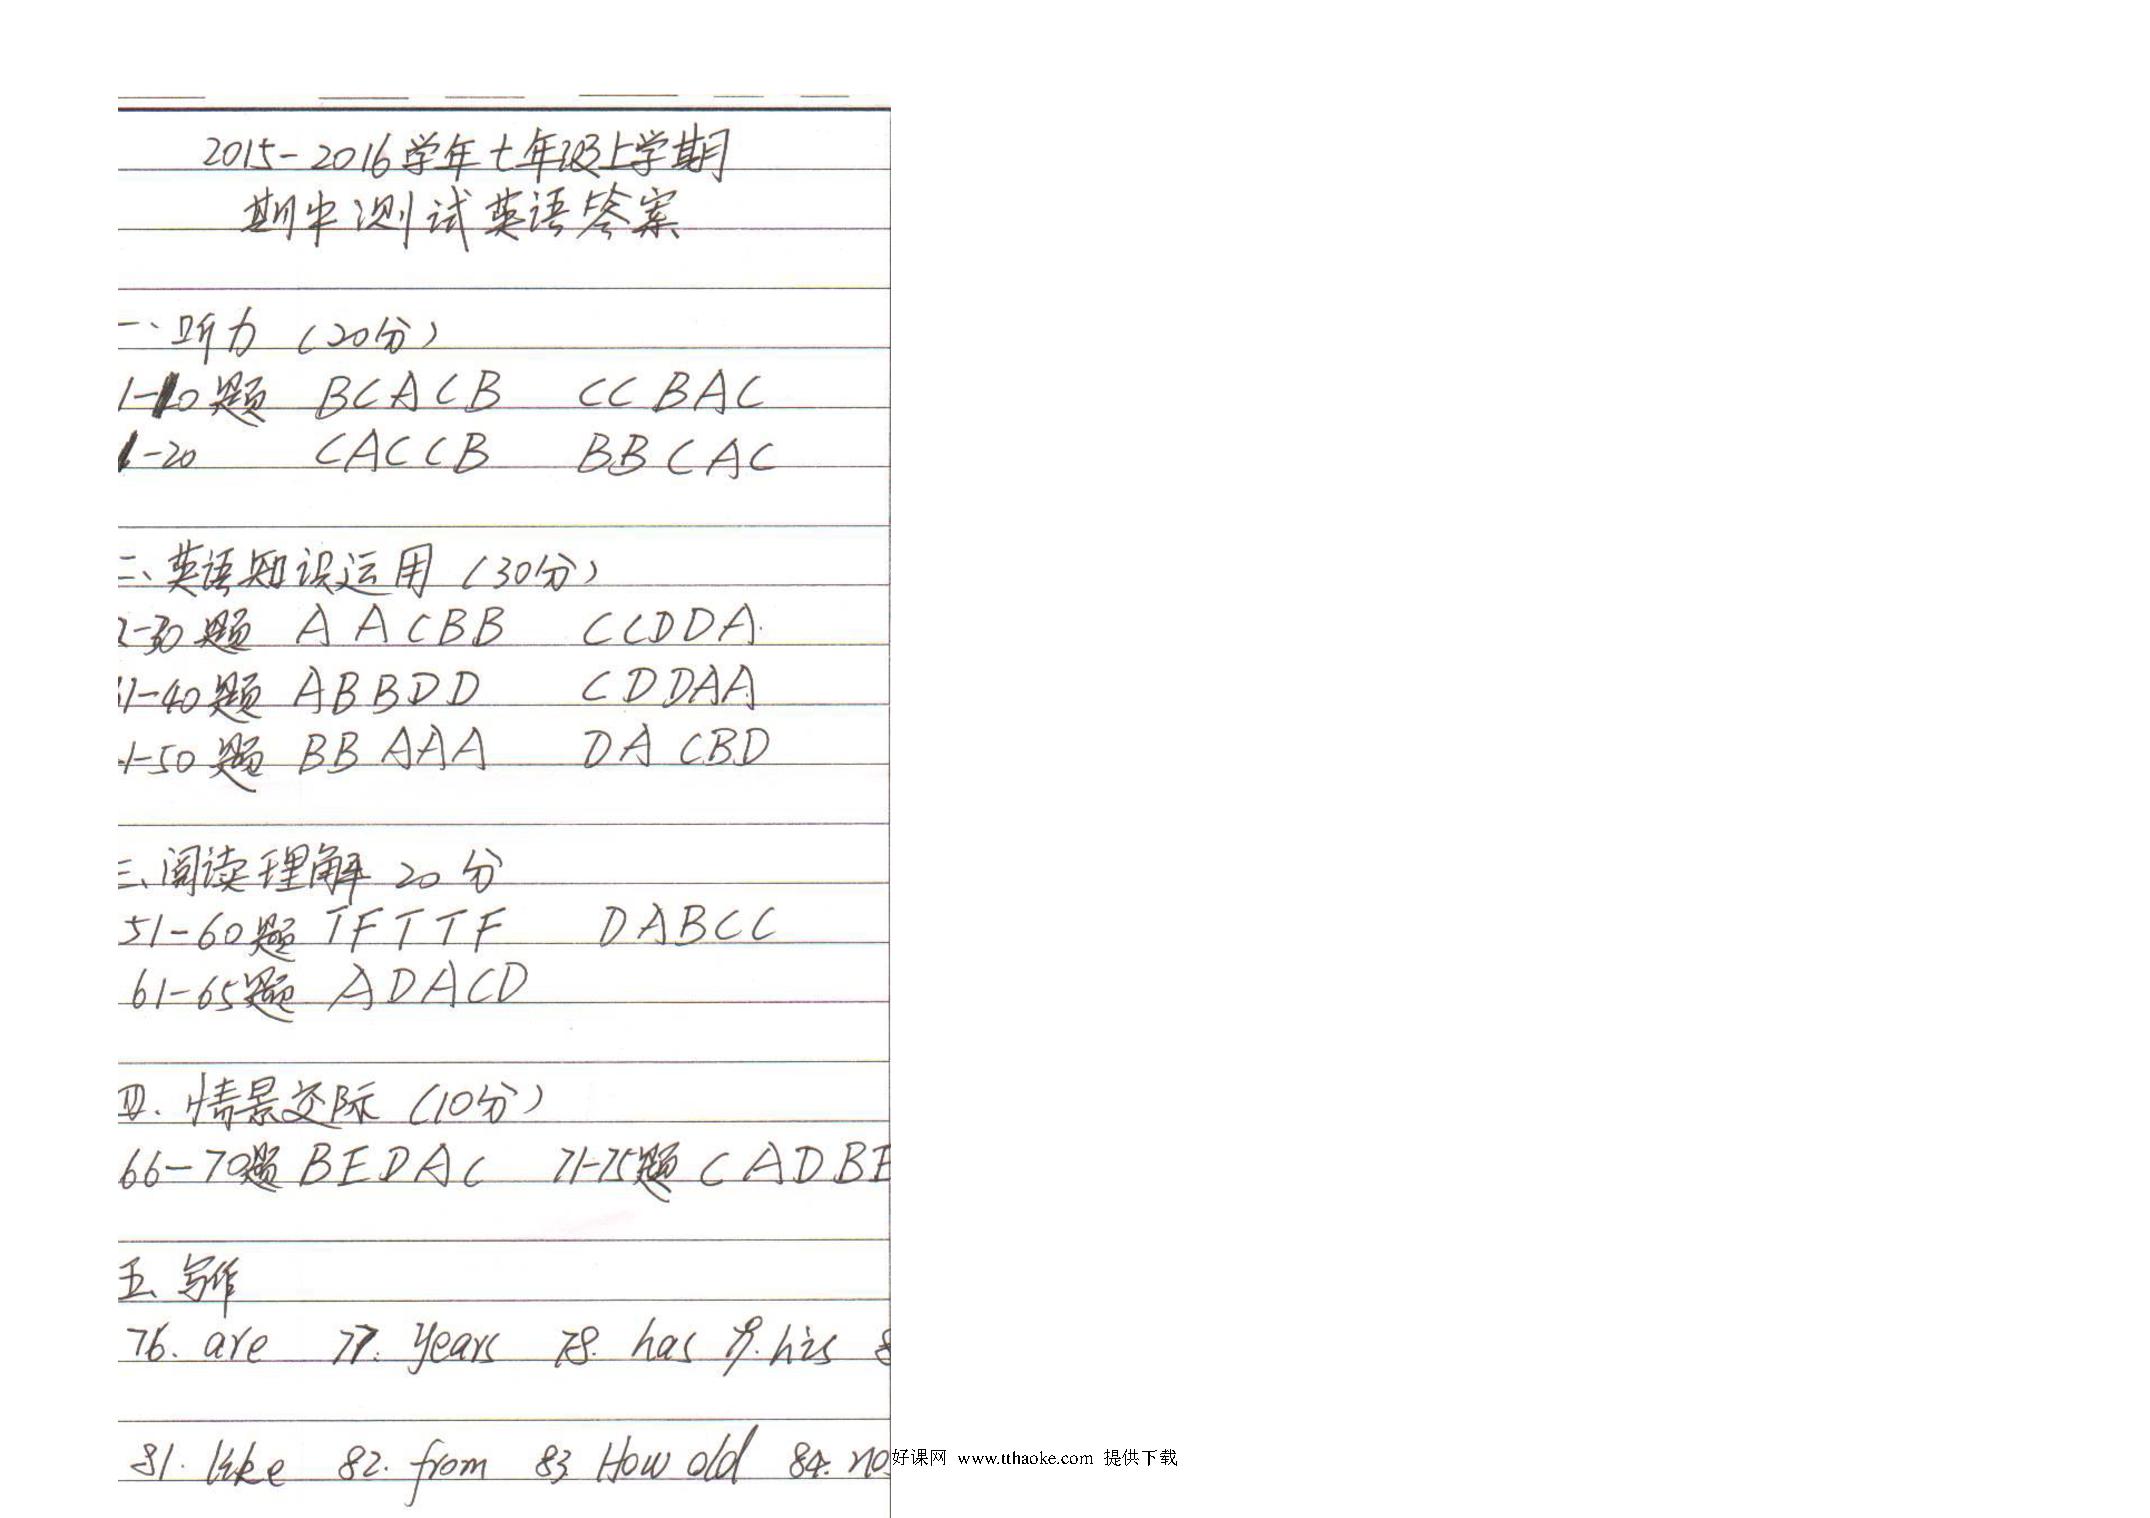 2015-2016学年七年级上学期
期中测试英语答案
一、听力（20分）
1-10题 BCACB CCBAC
1-20 CACCB BBCAC
二、英语知识运用（30分）
-30题 AACBB CCDDA.
1-40题 ABBDD CDDAA
1-50题 BBAAA DACBD
三、阅读理解 20分
51-60题 TFTTF DABCC
61-65题 ADACD
四. 情景交际（10分）
66-70题 BEDAC 71-75题 CADBE
五、写作
76. are 77. years 78. has 79. his
81. like 82. from 83 How old 84. no
好课网 www.tthaoke.com 提供下载